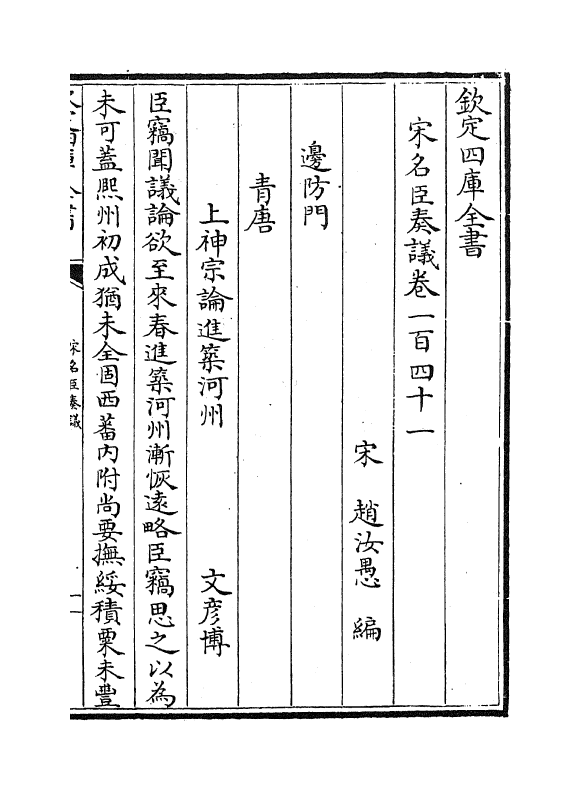 欽定四庫全書
宋名臣奏議卷一百四十一
宋 趙汝愚 編
邊防門
青唐
上神宗論進築河州 文彥博
臣竊聞議論欲至來春進築河州漸恢遠略臣竊思之以為
未可蓋熈州初成猶未全固西蕃内附尚要撫綏積粟未豐
宋名臣奏議